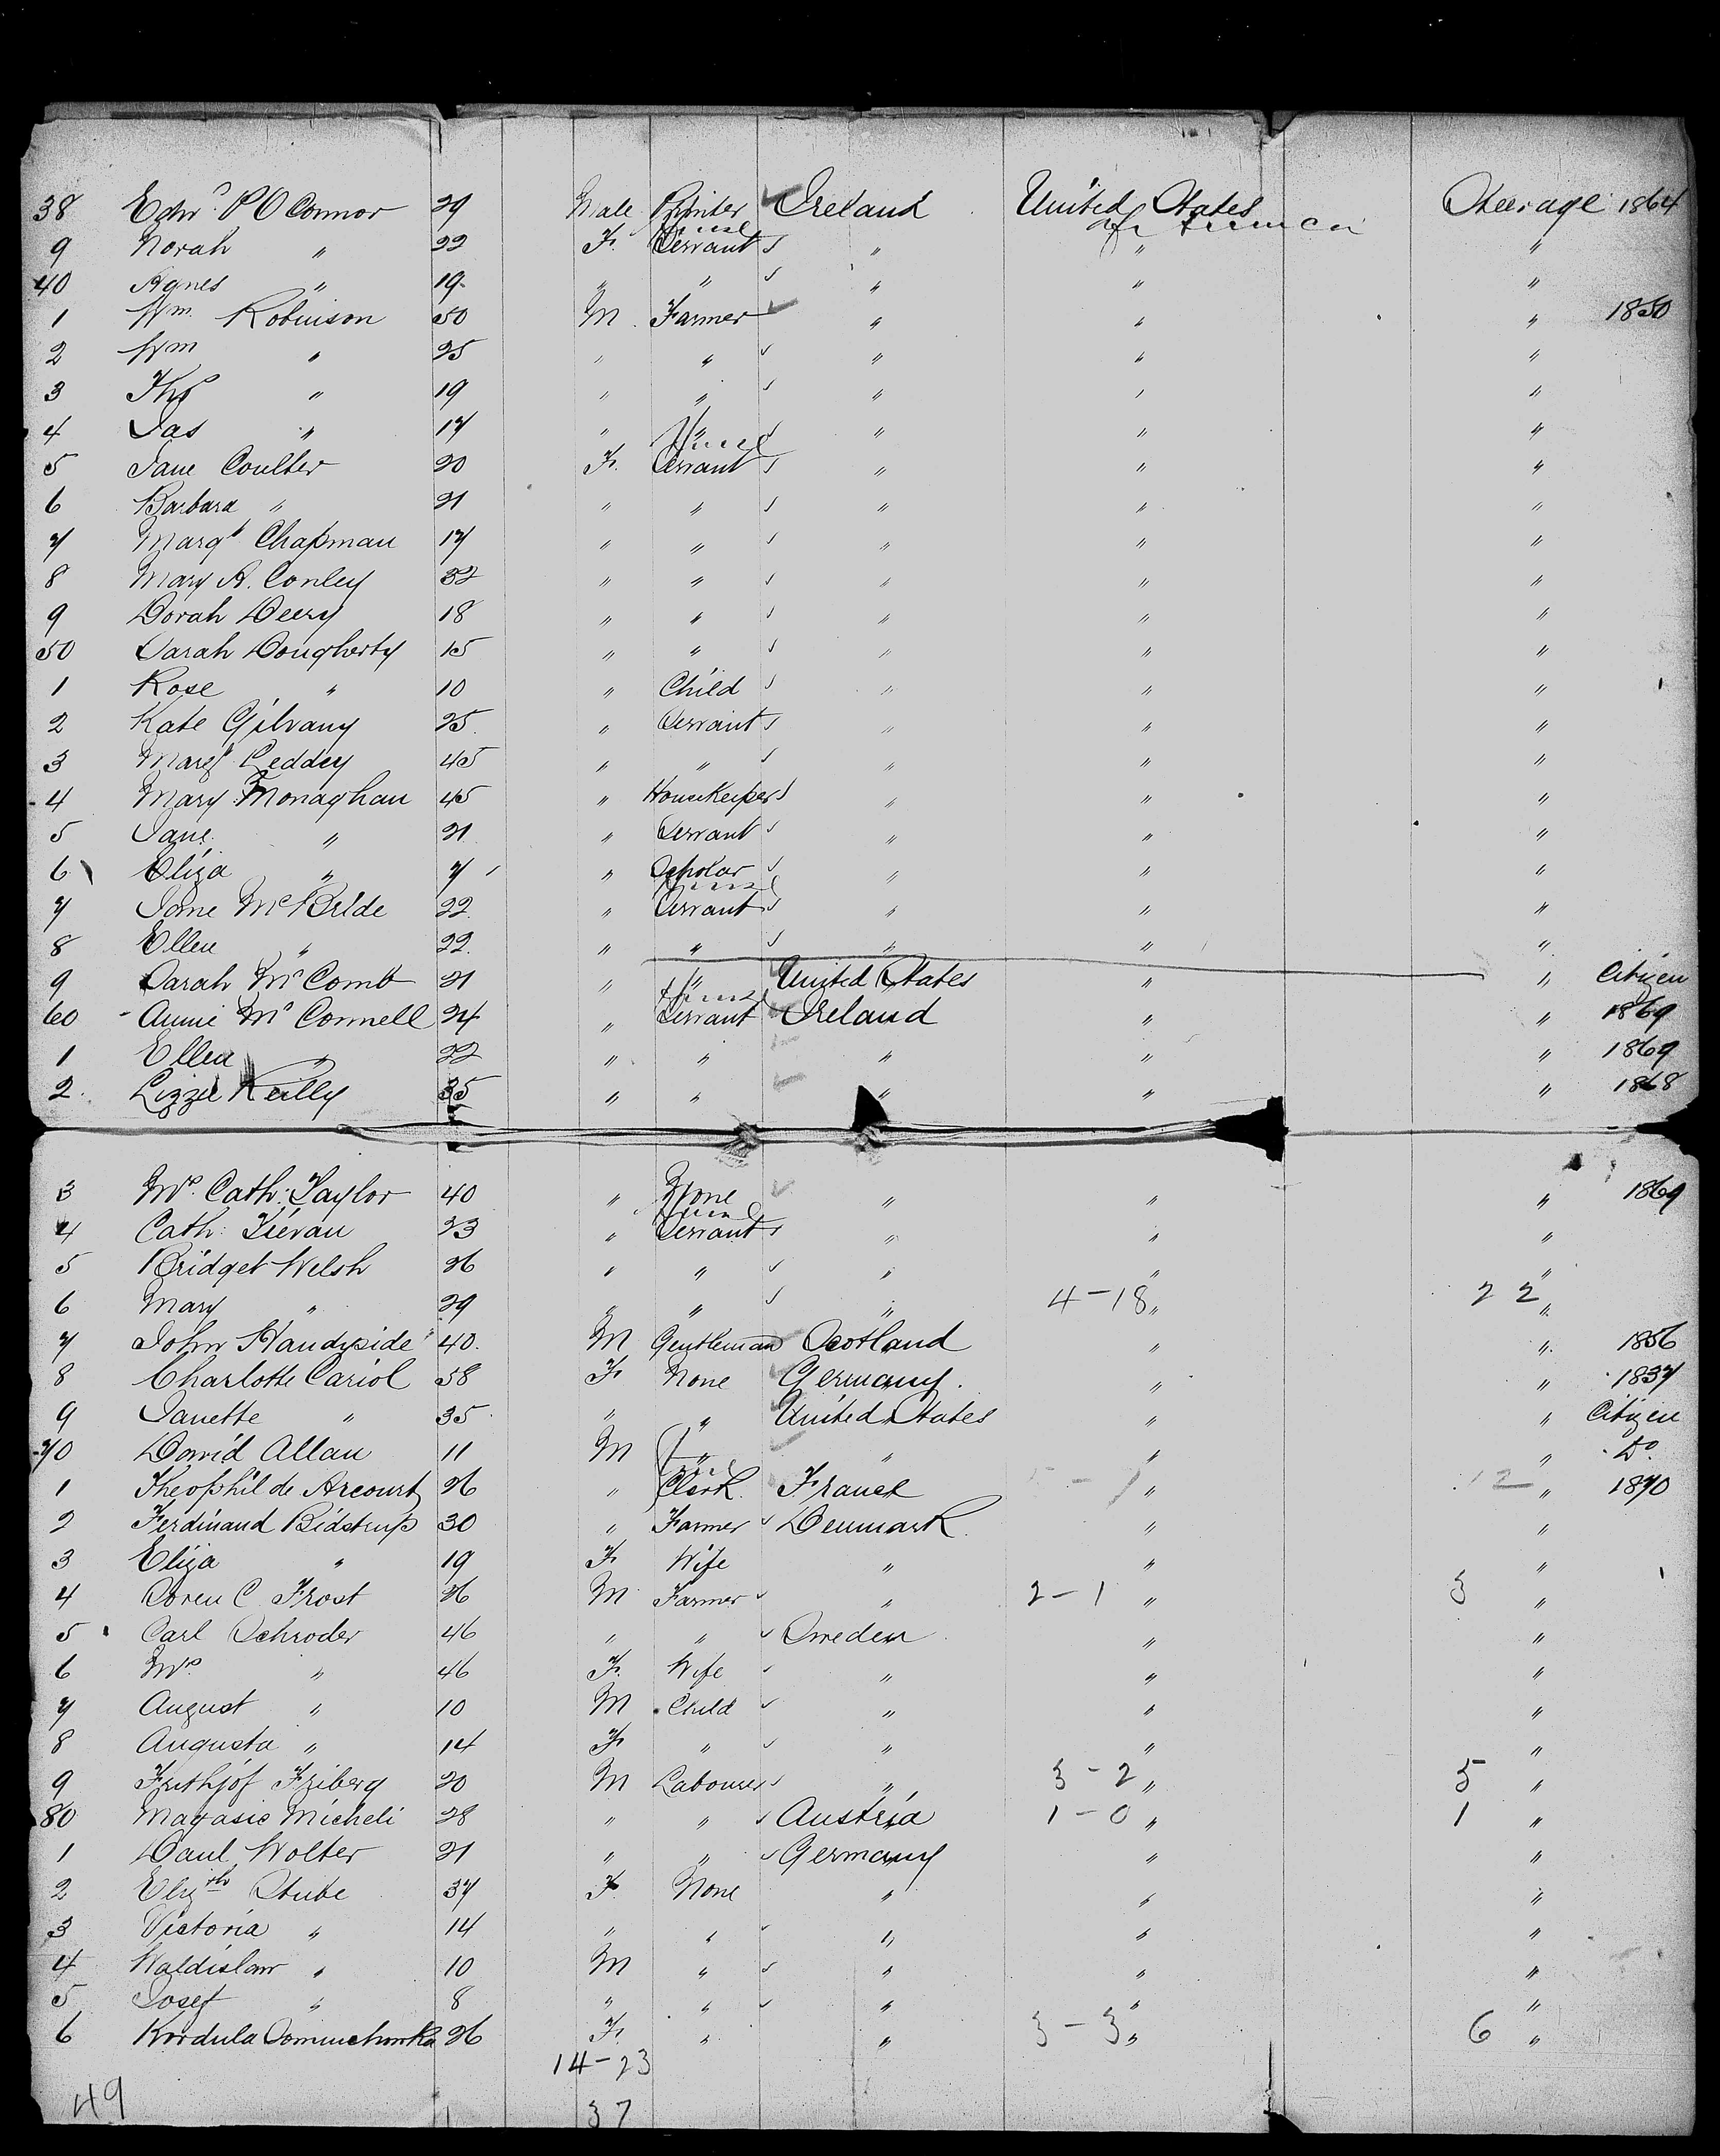 38 Edwd P O Connor 29 Male Printer Ireland United States Steerage 1864
of America
9 Norah " 22 F. Servant " " "
40 Agnes " 19 " " " " "
1 Wm Robinson 50 M Farmer " " " 1850
2 Wm " 25 " " " " "
3 Thos " 19 " " " " "
4 Jas " 17 " " " " "
5 Jane Coulter 20 F. Servant " " "
6 Barbara " 21 " " " " "
7 Margt Chapman 17 " " " " "
8 Mary A. Conley 32 " " " " "
9 Dorah Deery 18 " " " " "
50 Sarah Dougherty 15 " " " " "
1 Rose " 10 " Child " " "
2 Kate Gilvany 25 " Servant " " "
3 Margt Leddey 45 " " " " "
4 Mary Monaghan 45 " Housekeeper " " "
5 Jane " 21 " Servant " " "
6 Eliza " 7 " Scholar " " "
7 Jane McBride 22 " Servant " " "
8 Ellen " 22 " " " " "
9 Sarah McComb 21 " " United States " " Citizen
60 Annie McConnell 24 " Servant Ireland " " 1869
1 Ellen " 22 " " " " " 1869
2 Lizzie Reilly 35 " " " " " 1868
3 Mrs Cath: Taylor 40 " None " " " 1869
4 Cath: Kievan 23 " Servant " " "
5 Bridget Welsh 26 " " " " "
6 Mary " 29 " " " 4-18 " 22 "
7 John Handyside 40 M Gentleman Scotland " " 1856
8 Charlotte Cariol 58 F None Germany " " 1837
9 Janette " 35 " " United States " " Citizen
70 David Allan 11 M " " " " Do
1 Theophil de Arcourt 26 " Clerk France " 12 " 1870
2 Ferdinand Bidstrup 30 " Farmer Denmark " "
3 Eliza " 19 F Wife " " "
4 Soren C. Frost 26 M Farmer " 2-1 " 3 "
5 Carl Schroder 46 " " Sweden " "
6 Mrs " 46 F. Wife " " "
7 August " 10 M Child " " "
8 Augusta " 14 F " " " "
9 Frithjof Friberg 20 M Labourer " 3-2 " 5 "
80 Magasic Micheli 28 " " Austria 1-0 " 1 "
1 Paul Wolter 21 " " Germany " "
2 Elizth Stube 37 F None " " "
3 Victoria " 14 " " " " "
4 Waldislaw " 10 M " " " "
5 Josef " 8 " " " " "
6 Kordula 26 F. " " 3-3 " 6 "
14-23
49 37